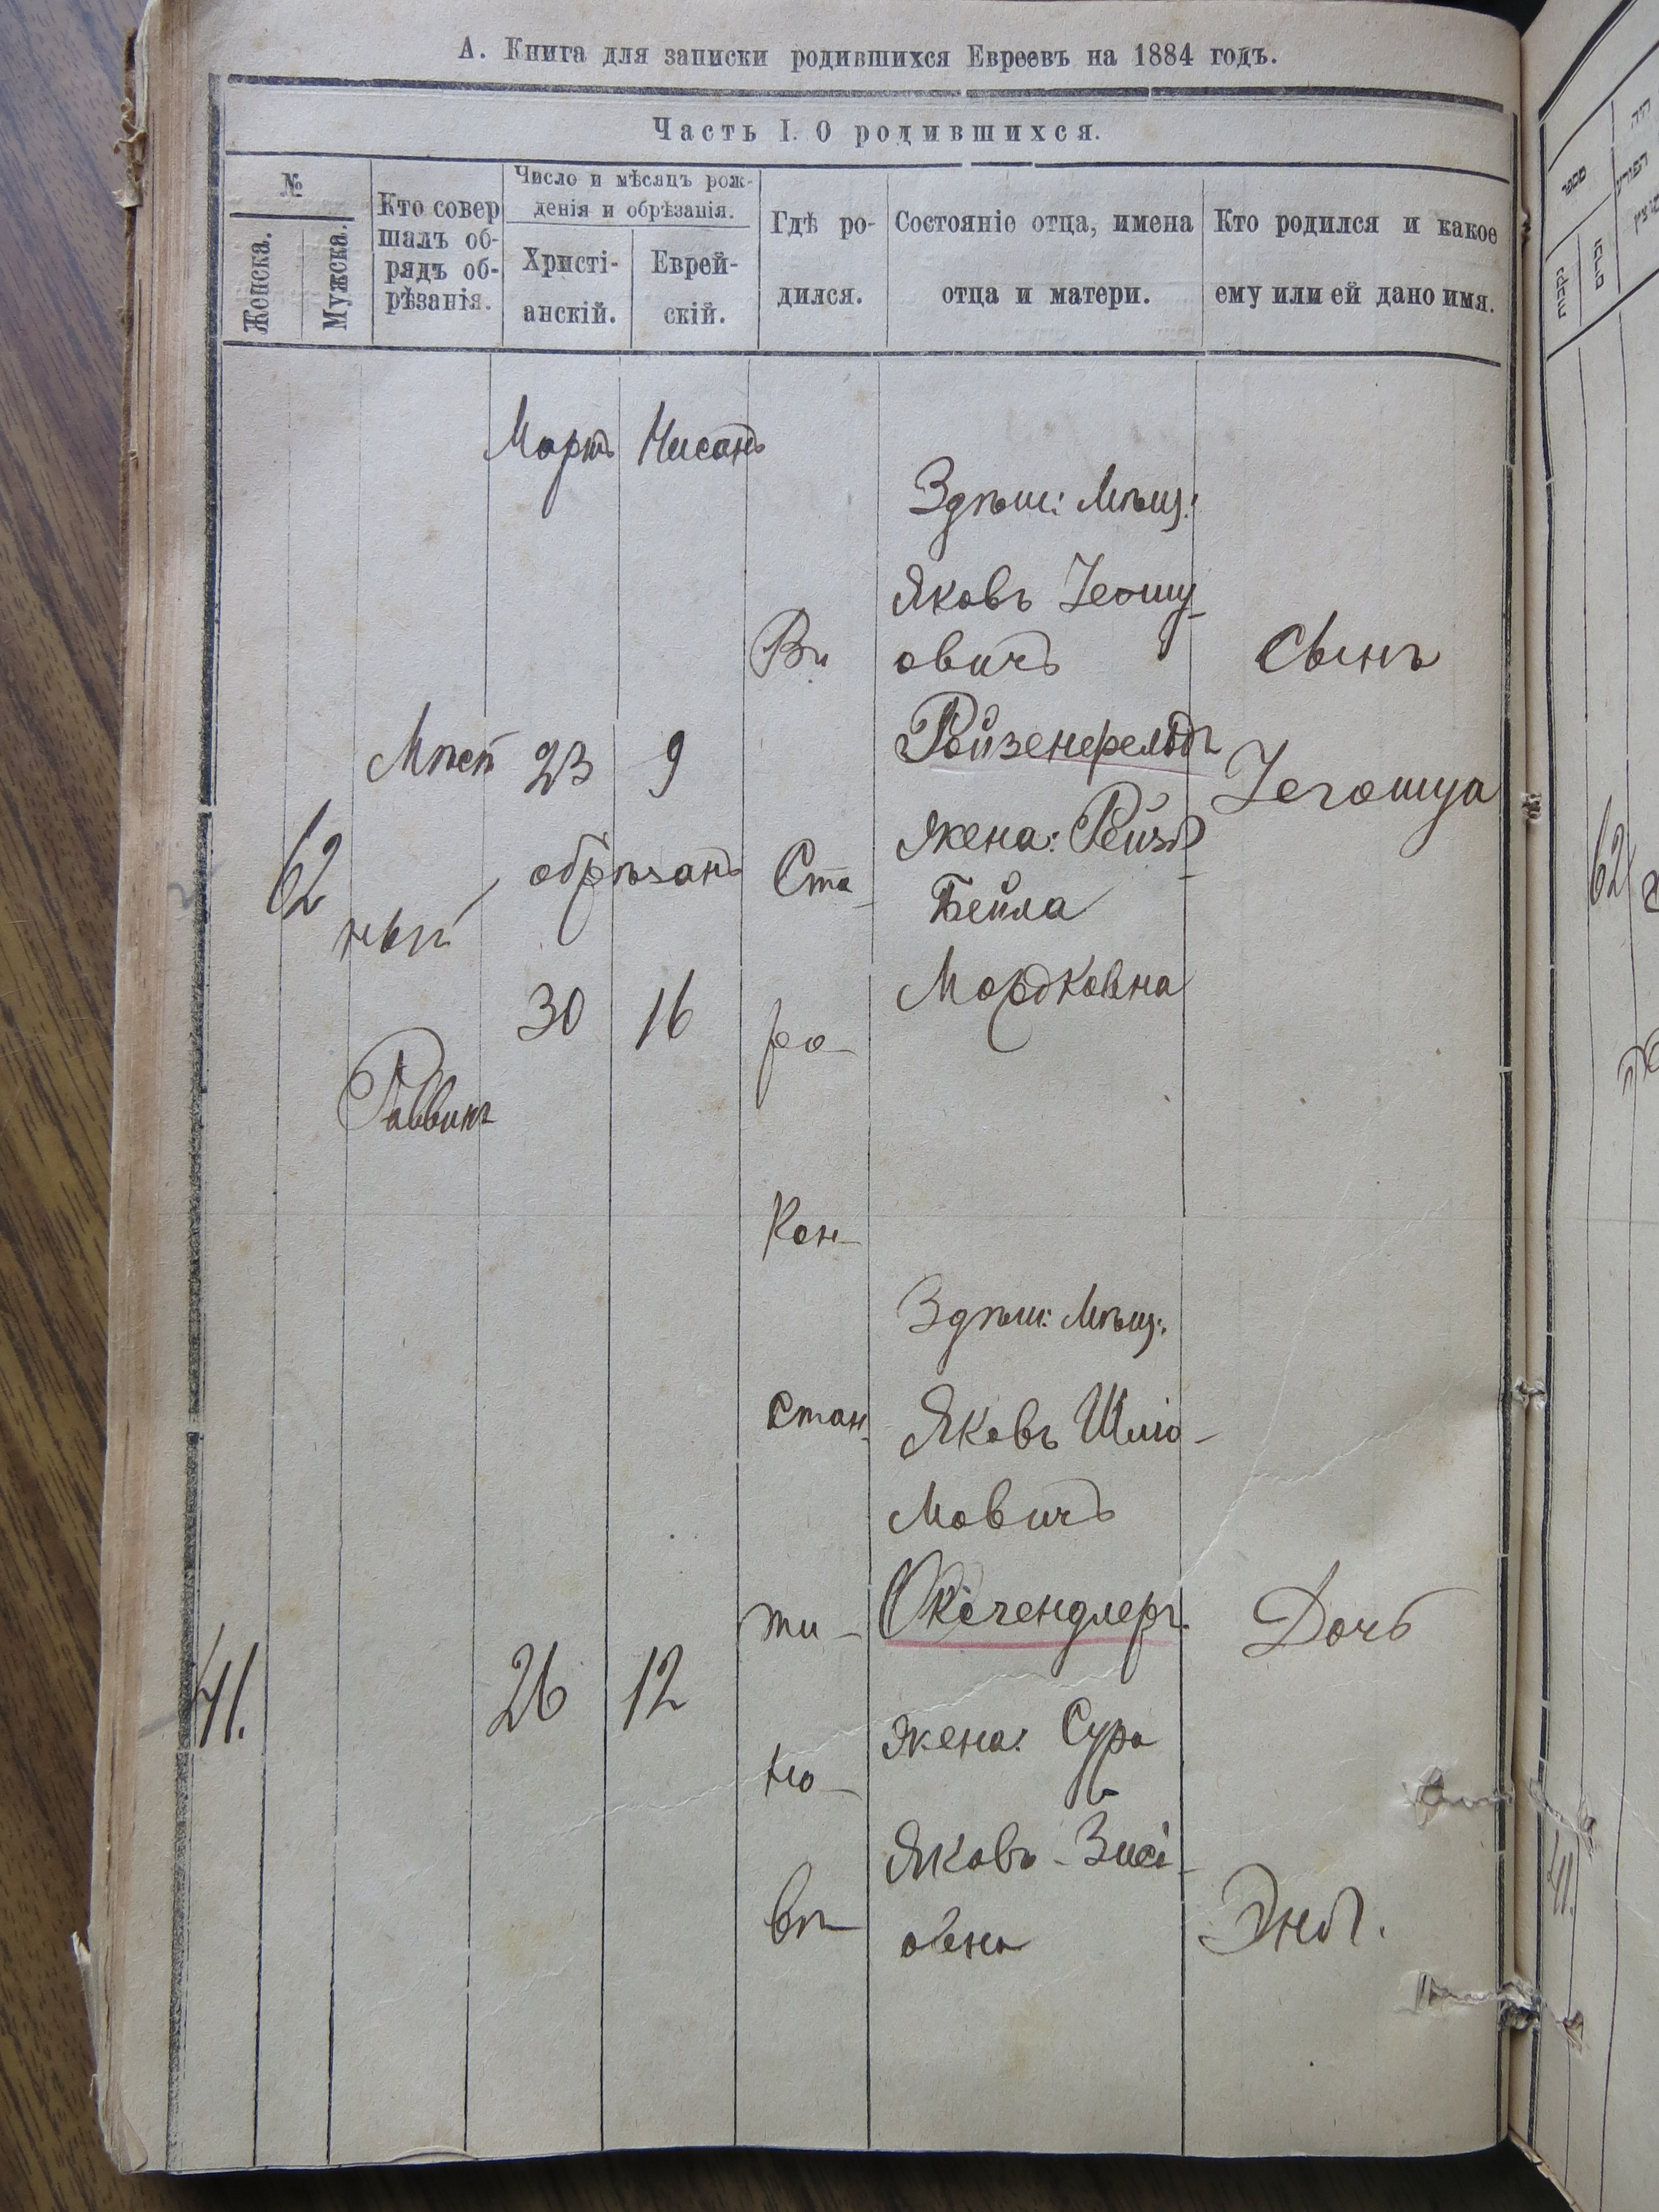 А. Книга для записки родившихся Евреевъ на 1884 годъ.
Часть I. О родившихся.
№
Женска.
Мужска.
Кто совер
шалъ об-
рядъ об-
рѣзанія.
Число и мѣсяцъ рож-
денія и обрѣзанія.
Христі-
анскій.
Еврей-
скій.
Гдѣ ро-
дился.
Состояніе отца, имена
отца и матери.
Кто родился и какое
ему или ей дано имя.
Мартъ
Нисанъ
62
Мѣст
ный
Раввинъ
23
9
обрѣзанъ
30
16
Въ
Ста-
ро-
Кон-
стан-
ти-
но-
вѣ
Здѣш: Мѣщ:
Яковъ Іешу-
овичъ
Ройзенфельдъ
жена: Рейзя-
Бейла
Мордковна
Сынъ
Іегошуа
41.
26
12
Здѣш: Мѣщ:
Яковъ Шліо-
мовичъ
Оксгендлеръ.
жена: Сура
Яковъ-Зись-
овна
Дочь
Эня.
מספר
נקבות
זכרים
62
41.